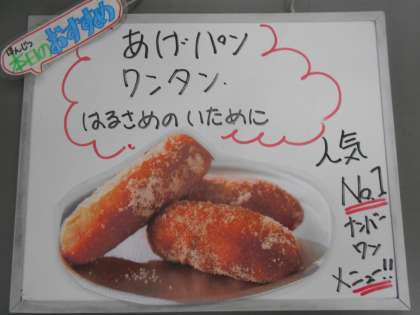 ほんじつ
本日のおすすめ
あげパン
ワンタン.
はるさめのいために
人気
No.1
ナンバー
ワン
メニュー!!